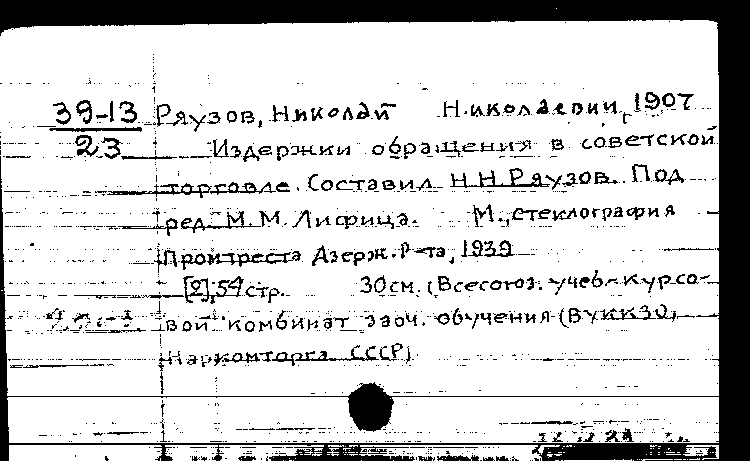 39-13 Ряузов, Николай Николаевич, 1907
23 Издержки обращения в советской
торговле. Составил Н.Н.Ряузов. Под
ред. М.М. Лифица. М., стеклография
Промтреста Дзерж. р-та, 1939
[2], 54 стр. 30 см. (Всесоюз. учеб.-курсо-
вой комбинат заоч. обучения (ВУККЗО)
Наркомторга СССР)